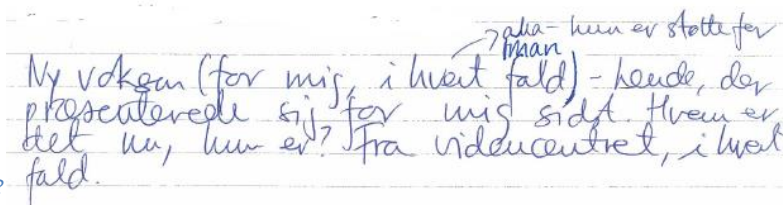 aha - hun er støtte for
Iman
Ny voksen (for mig, i hvert fald) - hende, der
præsenterede sig for mig sidst. Hvem er
det nu, hun er? Fra videncentret, i hvert
fald.